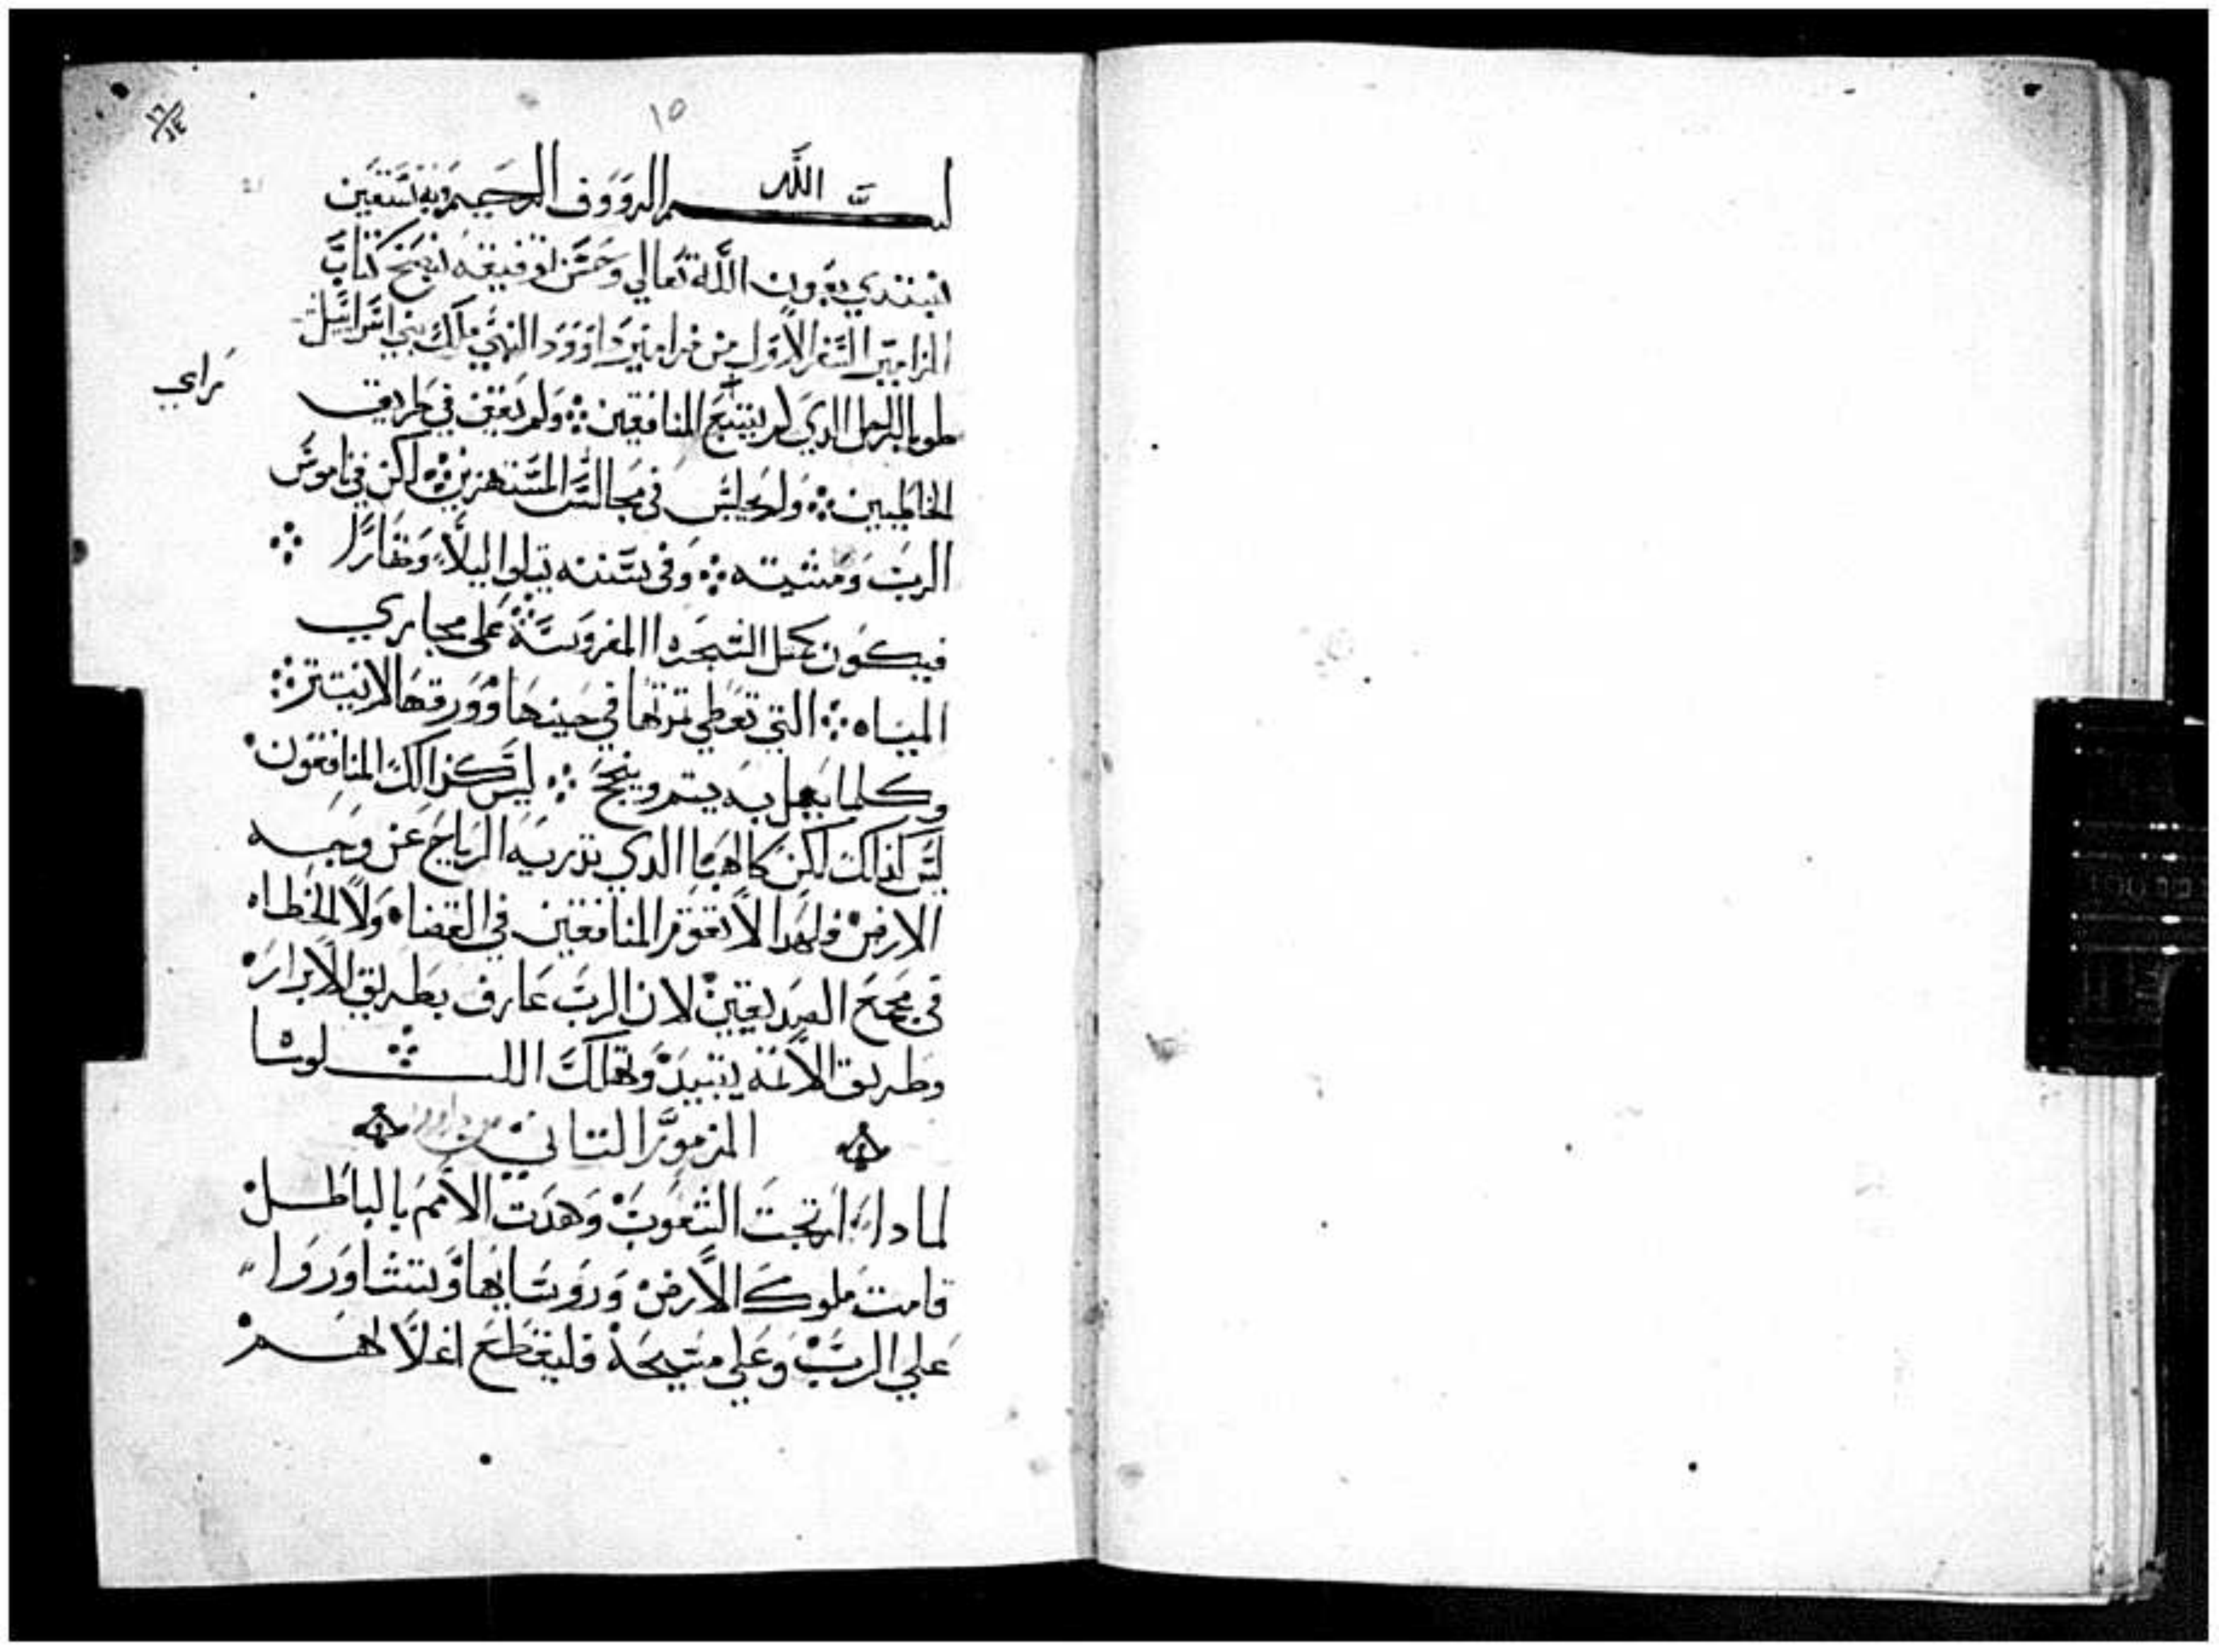 ١٥
١٦/١٤
بسم الله الرووف الرحيم وبه نستعين
نبتدي بعون الله تعالي وحسن توفيقه ننسخ كتاب
المزامير السفر الاول من مزامير داوود النبي ملك بني اسرائيل
طوبا للرجل الدي لم يتبع المنافقين ۞ ولم يقف في طريق
مراي
الخاطيين ۞ ولم يجلس في مجالس المستهزين ۞ لكن في ناموس
الرب ومشيته ۞ وفي سننه يتلوا ليلاً ونهاراً ۞
فيكون كمثل الشجره المغروسة على مجاري
المياه ۞ التي تعطي ثمرتها في حينها وورقها لا ينتثر ۞
وكلما يعمل به يتم وينجح ۞ ليس كذالك المنافقون
ليس كذالك لكن كالهبا الدي تدريه الرياح عن وجه
الارض ولهدا لا تقوم المنافقين في القضاه ولا الخطاه
في مجمع الصديقين لان الرب عارف بطريق الابرار
وطريق الاثمه يتبيد وتهلك الليلوييا
المزمور التاني من داوود
لمادا ارتجت الشعوب وهدت الامم بالباطل
قامت ملوك الارض وروسايها وتشاوروا
علي الرب وعلي مسيحه فليقطع اغلالهم